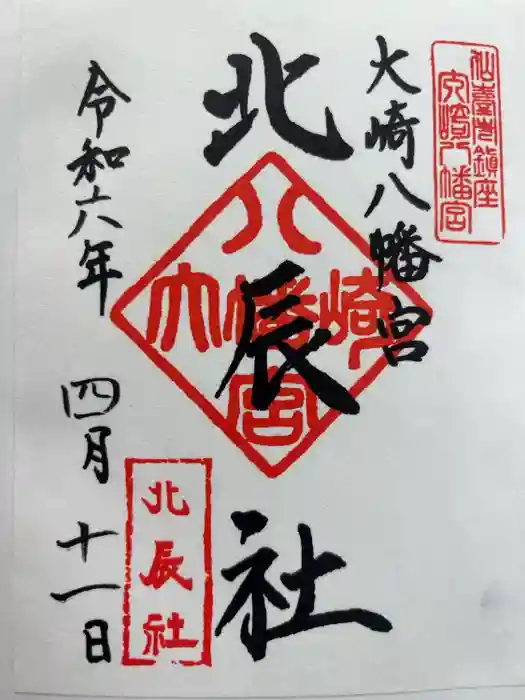 仙臺市鎮座
大崎八幡宮
大崎八幡宮
北辰社
八
大幡崎
宮
北辰社
令和六年
四月十一日